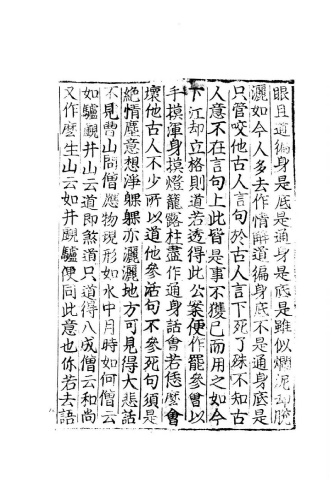 眼且道徧身是底是通身是底是雖似爛泥却脫
灑如今人多去作情解道徧身底不是通身底是
只管咬他古人言句於古人言下死了殊不知古
人意不在言句上此皆是事不獲已而用之如今
下注却立格則道若透得此公案便作罷參會以
手摸渾身摸燈籠露柱盡作通身話會若恁麼會
壞他古人不少所以道他參活句不參死句須是
絕情塵意想淨躶躶赤灑灑地方可見得大悲話
不見曹山問僧應物現形如水中月時如何僧云
如驢覰井山云道即煞道只道得八成僧云和尚
又作麼生山云如井覰驢便同此意也你若去語